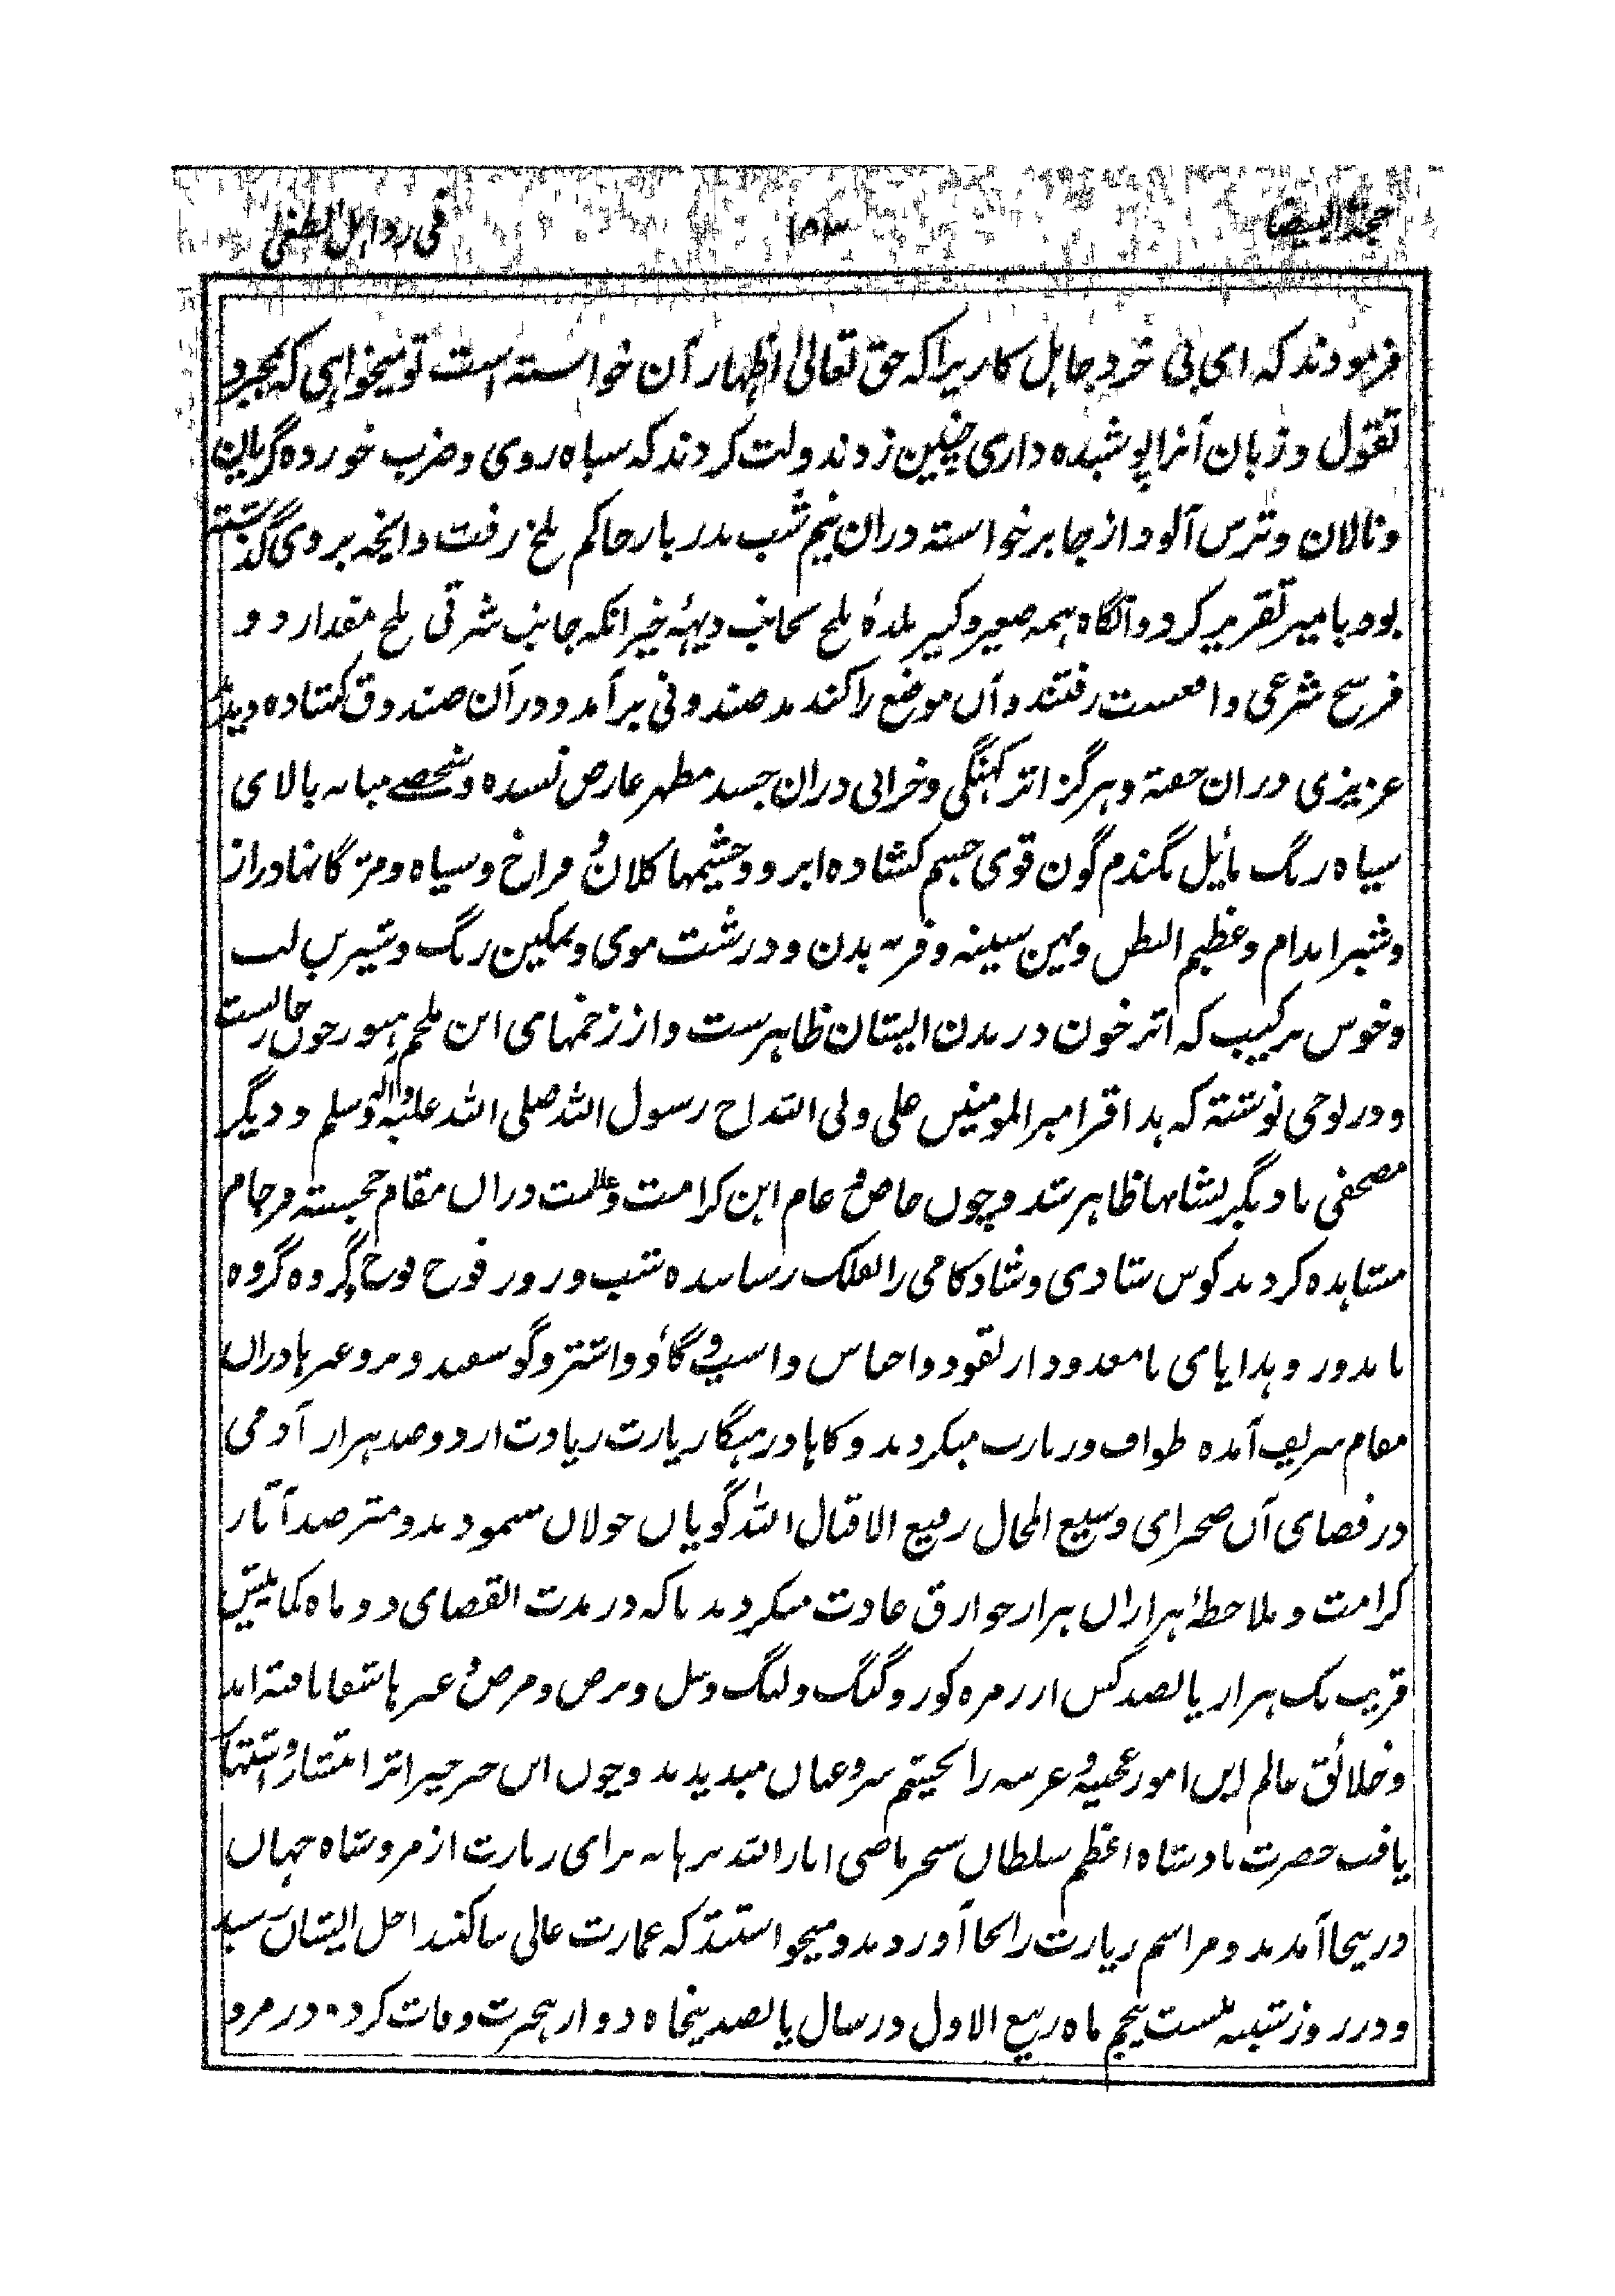 حجة البیضا ۱۸۳ فی رد اہل الطغی
فرمودند که ای بی خرد جاہل کاریرا که حق تعالی اظہار آن خواسته است تو میخواہی که بمجرد
تقول و زبان آنرا پوشیده داری چنین زدند ولت کردند که سیاه روی و ضرب خورده گریان
و نالان و ترس آلود از جا برخواسته دران نیم شب بدربار حاکم بلخ رفت دانچه بروی گذشته
بود بامیر تقریر کرد و انگاه ہمه صغیر و کبیر بلدۂ بلخ بجانب دیہۂ خیرانکه جانب شرقی بلخ مقدار دو
فرسخ شرعی واقعست رفتند و آں موضع را کندند صندوقی برآمد و در آن صندوق کشاده دیدند
عزیزی دران خفته و ہرگز اثر کہنگی و خرابی دران جسد مطہر عارض نشده و شخصے میانه بالای
سیاه رنگ مایٔل بگندم گون قوی جسم کشاده ابرو و چشیمها کلان و فراخ و سیاه و مژگانہا دراز
و شیر اندام و عظیم البطن و پہن سینه و فربه بدن و درشت موی و نمکین رنگ و شیرین لب
و خوش ترکیب که اثر خون در بدن ایشان ظاہرست و از زخمہای ابن ملجم ہنوز خون جاریست
و در لوحی نوشته که ہذا قبر امیر المومنین علی ولی الله اخ رسول الله صلی الله علیه وآله وسلم و دیگر
مصحفی با دیگر نشانہا ظاہر شد و چوں خاص و عام این کرامت و عظمت دراں مقام خجسته فرجام
مشاہده کردند کوس شادی و شادکامی را بفلک رسانده شب و روز فوج فوج گروه گروه
با نذور و ہدایای نامعدود از نقود و اجناس و اسپ و گاؤ و اشتر و گوسفند و برو غیرہا دراں
مقام شریف آمده طواف و زیارت میکردند و گاہا درہنگام زیارت زیادت از دو صد ہزار آدمی
در فضای آں صحرای وسیع المحال رفیع الاقبال الله گویاں جولاں مینمودند و مترصد آثار
کرامت و ملاحظۂ ہزاراں ہزار خوارق عادت میکردند تا که در مدت انقضای دو ماه کمابیش
قریب یک ہزار پانصد کس از زمره کور و گنگ و لنگ و شل و برص و مرض و غیرہا شفا یافته اند
و خلائق عالم این امور عجیبه و غریبه را بچشم سر و عیاں میدیدند و چوں این خبر خیر اثر انتشار و اشتہار
یافت حضرت بادشاه اعظم سلطان سنجر ماضی انار الله برہانه برای زیارت از مرو شاه جہاں
دریجا آمدند و مراسم زیارت را بجا آوردند و میخواستند که عمارت عالی بنا کنند اجل ایشان رسید
و در روز شنبه بست پنجم ماه ربیع الاول در سال پانصد پنجاه دو از ہجرت وفات کرده در مرو